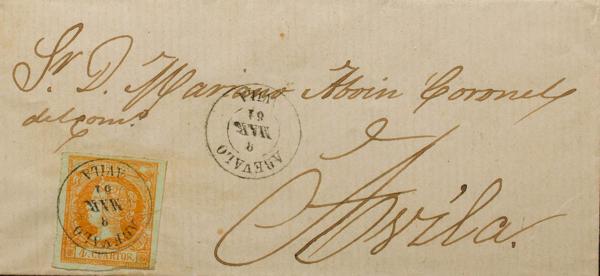 Sr. D. Mariano Aboin Coronel
del com.o
Avila.
AREVALO
8
MAR
61
AVILA
AREVALO
8
MAR
61
AVILA
4 CUARTOS